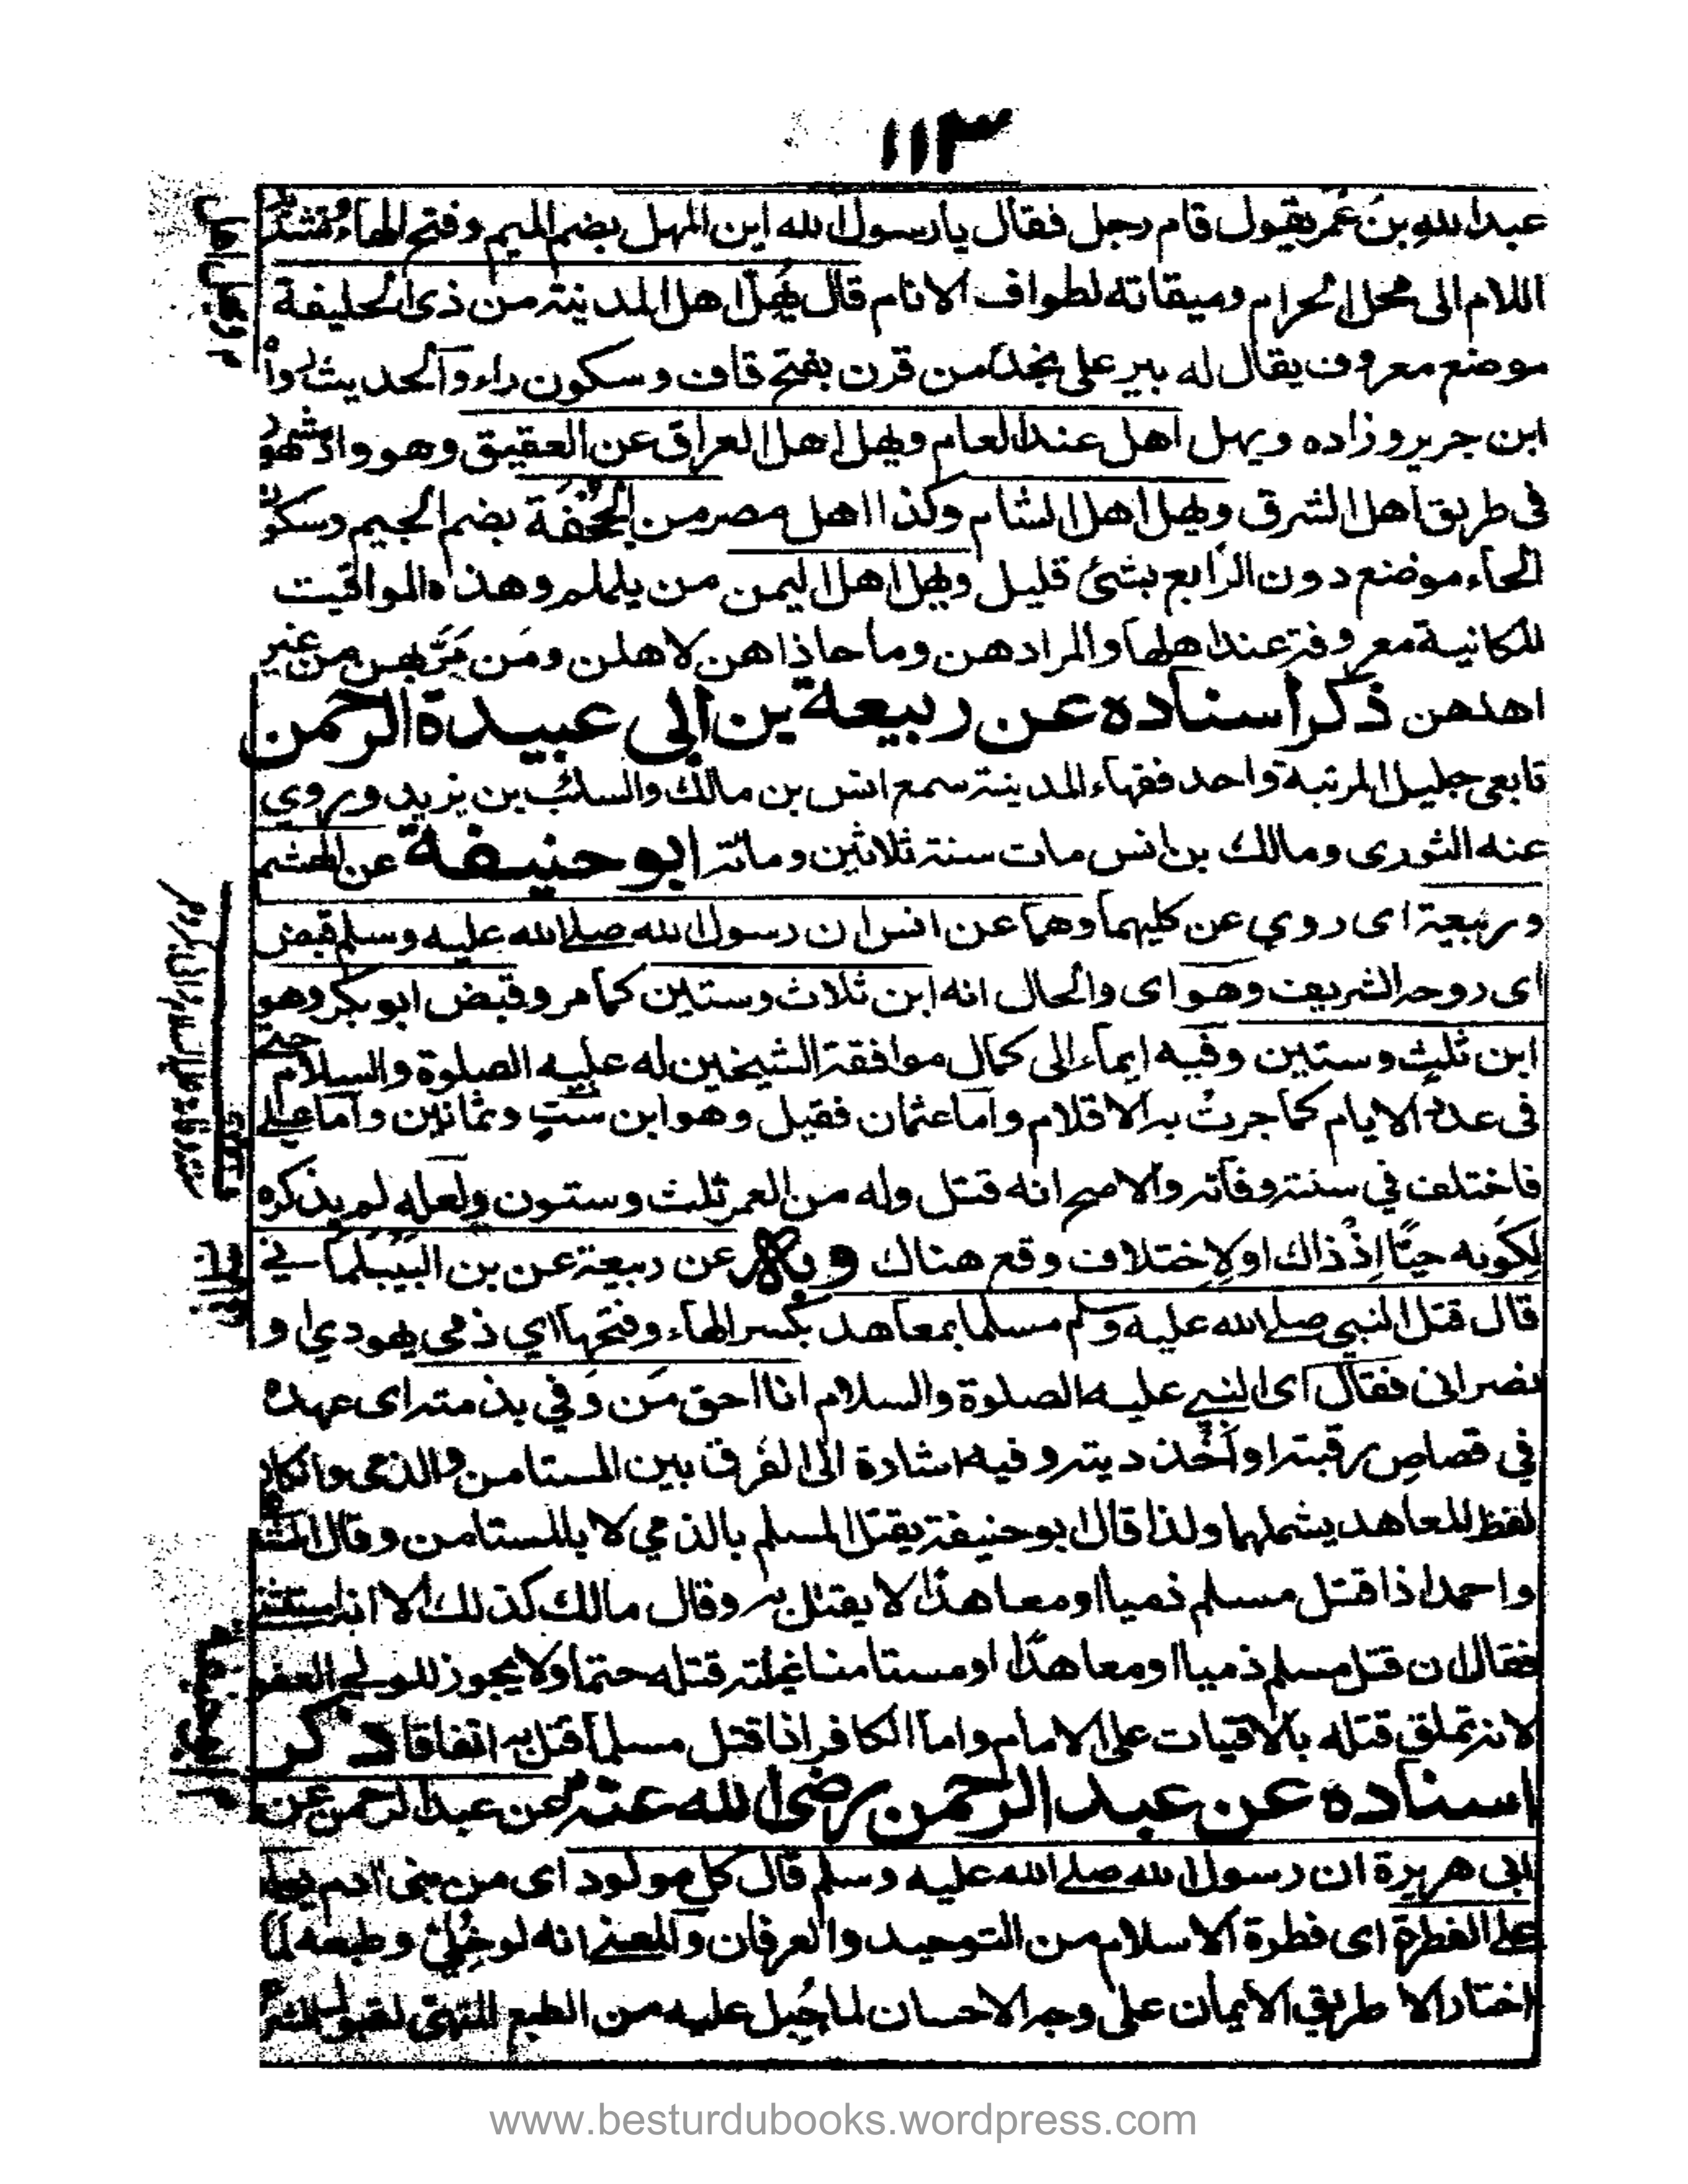 ١١٣
عبدالله بن عُمر يقول قام رجل فقال يارسول الله اين المهل بضم الميم وفتح الهاء وتشديد
اللام الى محل الحرام وميقاته لطواف الانام قال يُهِلّ اهل المدينة من ذى الحليفة
موضع معروف يقال له بير على نجد من قرن بفتح قاف وسكون راء والحديث رواه
ابن جرير وزاده ويهل اهل عند العام ويهل اهل العراق عن العقيق وهو واد مشهور
فى طريق اهل الشرق ويهل اهل الشام وكذا اهل مصر من الجُحْفَة بضم الجيم وسكون
الحاء موضع دون الرابع بشئ قليل ويهل اهل اليمن من يلملم وهذه المواقيت
المكانية معروفة عند اهلها والمراد هن وما حاذاهن لاهلن ومَن مَرَّ بهن من غير
اهدهن ذكر اسناده عن ربيعة بن ابى عبيدة الرحمن
تابعى جليل المرتبة واحد فقهاء المدينة سمع انس بن مالك والسائب بن يزيد وروى
عنه الثورى ومالك بن انس مات سنة ثلاثين ومائة ابو حنيفة عن الهشم
وربيعة اى روي عن كليهما وهما عن انس ان رسول الله صلے الله عليه وسلم قبض
اى روحه الشريف وهو اى والحال انه ابن ثلاث وستين كما مر وقبض ابو بكر وهو
ابن ثلث وستين وفيه ايماء الى كمال موافقة الشيخين له عليه الصلوة والسلام حتے
فى عدة الايام كما جرتْ به الاقلام واما عثمان فقيل وهو ابن ستٍ وثمانين واما علے
فاختلف في سنة وفاته والاصح انه قتل وله من العمر ثلث وستون ولعله لم يذكره
لكونه حيًّا اذْ ذاك او لاختلاف وقع هناك وبه عن ربيعة عن بن البَيْلَمانے
قال قتل النبي صلے الله عليه وسلم مسلما بمعاهد بكسر الهاء وفتحها اي ذمى يهودي او
نصرانى فقال اى النبے عليه الصلوة والسلام انا احق مَن وَفي بذمته اى عهده
في قصاص رقبته او اخذ ديته وفيه اشارة الى الفرق بين المستامن والذمى وانكان
لفظ المعاهد يشملهما ولذا قال ابو حنيفة يقتل المسلم بالذمي لا بالمستامن وقال
واحمد اذا قتل مسلم ذميا او معاهدًا لا يقتل به وقال مالك كذلك الا انه استثنے
فقال ان قتل مسلم ذميا او معاهدًا او مستامنا غيلته قتله حتما ولا يجوز للولے العفو
لانه تملق قتله بالاقيات على الامام واما الكافر اذا قتل مسلما قتل به اتفاقا ذكر
اسناده عن عبد الرحمن رضى الله عنه عن عبد الرحمن عن
ابى هريرة ان رسول الله صلے الله عليه وسلم قال كل مولود اى من بنى ادم يولد
علے الفطرة اى فطرة الاسلام من التوحيد والعرفان والمعنے انه لو خُلِّىَ وطبعه لما
اختار الا طريق الايمان على وجه الاحسان لما جُبِل عليه من الطبع المتهئ لقبول
www.besturdubooks.wordpress.com